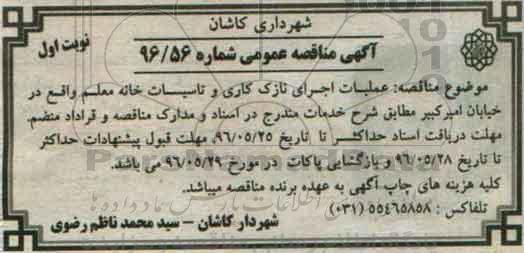 شهرداری کاشان
نوبت اول
آگهی مناقصه عمومی شماره ۹۶/۵۶
موضوع مناقصه: عملیات اجرای نازک کاری و تاسیسات خانه معلم واقع در
خیابان امیرکبیر مطابق شرح خدمات مندرج در اسناد و مدارک مناقصه و قراداد منضم.
مهلت دریافت اسناد حداکثر تا تاریخ ۹۶/۰۵/۲۵، مهلت قبول پیشنهادات حداکثر
تا تاریخ ۹۶/۰۵/۲۸ و بازگشایی پاکات در مورخ ۹۶/۰۵/۲۹ می باشد.
کلیه هزینه های چاپ آگهی به عهده برنده مناقصه میباشد.
تلفاکس : ۵۵۴۶۵۸۵۸ (۰۳۱)
شهردار کاشان – سید محمد ناظم رضوی